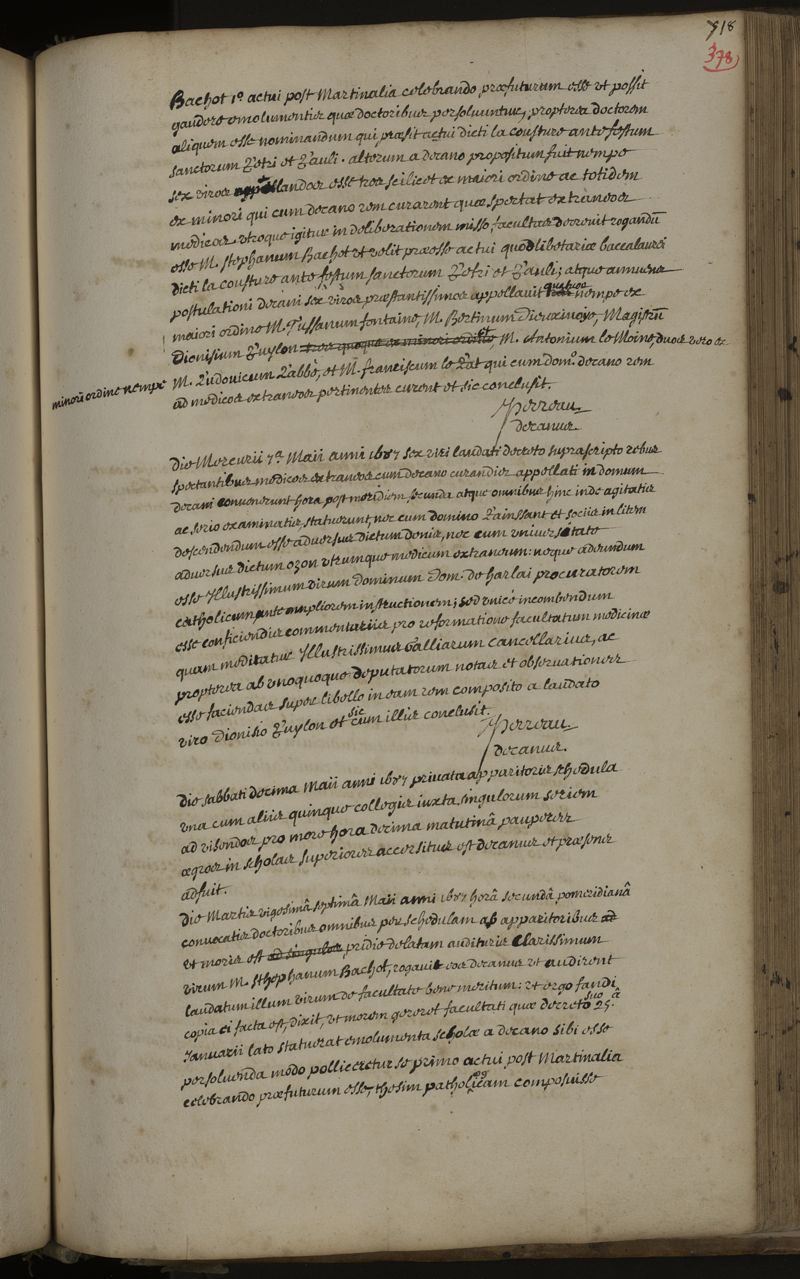 918
378
Bachot 1º actui post Martinalia celebrando præfuturum esse ut possit
gaudere emolumentis quæ doctoribus persoluuntur, propterea doctorem
aliquem esse nominandum qui præsit actui dicti la cousture ante festum
sanctorum Petri et Pauli. alterum a decano propositum fuit nempe
sex viros appellandos esse tres scilicet ex maiori ordine ac totidem
ex minori qui cum decano rem curarent quæ spectat extraneos
medicos. utroque igitur in deliberationem misso, facultas decreuit rogandū
esse M. stephanum Bachot ut velit præesse actui quodlibetariæ baccalaurei
dicti la cousture ante festum sanctorum Petri et Pauli; atque annuens
postulationi decani sex viros præstantissimos appellauit quatuor nempe ex
maiori ordine M. Tussanum fontaine, M. Bertinum Dieuxiuoye, Magistrū
Dionisium Puylon et M. Antonium le Moine, duos vero ex
minori ordine nempe M. Ludouicum Labbé, et M. franciscum le Rat qui cum dom.º decano rem
ad medicos extraneos pertinentem curent et sic conclusit.
Perreau
decanus.
Die Mercurii 7ª Maii anni 1687 sex viri laudati decreto suprascripto rebus
spectantibus medicos extraneos cum decano curandis appellati in domum
decani conuenerunt hora post meridiem secunda atque omnibus hinc inde agitatis
ac serio examinatis, statuerunt, nec cum domino Rainssant et sociis in litem
descendendum esse aduersus dictum denis, nec cum uniuersitate
aduersus dictum ozon utrumque medicum extraneum: neque adeundum
esse Illustrissimum virum Dominum Dom. de harlai procuratorem
catholicum ante ampliorem instructionem; sed unicè incombendum
esse conficiendis commentariis pro reformatione facultatum medicinæ
quam meditatur Illustrissimus Galliarum cancellarius, ac
propterea ab unoquoque deputatorum notas et obseruationes
esse faciendas super libello in eam rem composito a laudato
viro Dionisio Puylon et sic cum illis conclusit.
Perreau
decanus.
Die sabbati decima Maii anni 1687 priuata apparitoris schedula
una cum aliis quinque collegis iuxta singulorum seriem
ad visendos pro more hora decima matutinâ pauperes
ægros in scholas superiores accersitus est decanus et præsens
adfuit.
Die Martis vigesimâ septimâ Maii anni 1687 horâ secundâ pomeridianâ
conuocatis doctoribus omnibus per schedulam ab apparitoribus
ut moris est pridie delatam audituris Clarissimum
virum M. sthephanum Bachot, rogauit eos decanus ut audirent
laudatum illum virum de facultate bene meritum: et ergo fandi
copia ei facta est, dixit, ut morem gereret facultati quæ decreto suo 25.ª
Januarii lato statuerat emolumenta scholæ a decano sibi esse
persoluenda modo polliceretur se primo actui post Martinalia
celebrando præfuturum esse, thesim pathologicam composuisse